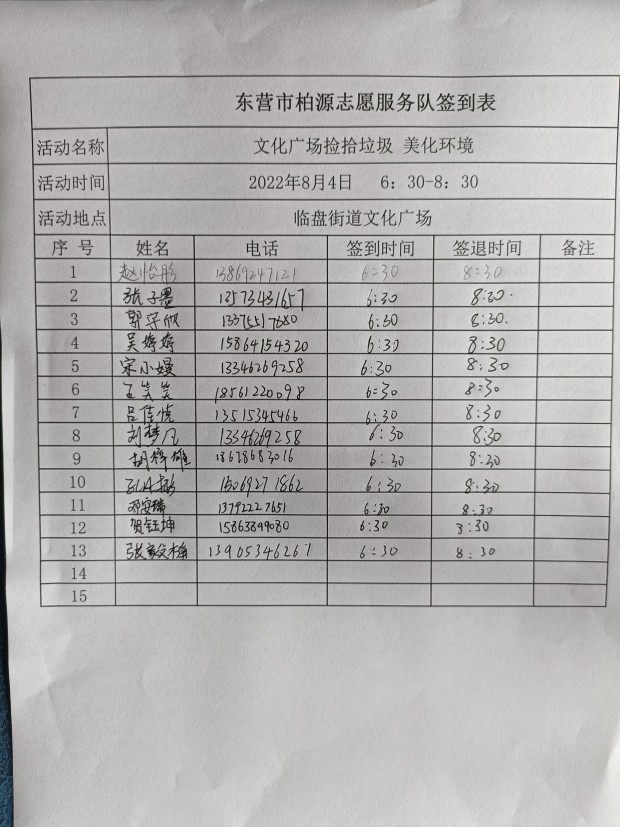 东营市柏源志愿服务队签到表
活动名称 文化广场捡拾垃圾 美化环境
活动时间 2022年8月4日 6：30-8：30
活动地点 临盘街道文化广场
序号 姓名 电话 签到时间 签退时间 备注
1 赵怡彤 13869247121 6:30 8:30
2 张子墨 13573431657 6:30 8:30.
3 郭守欣 6:30 8:30.
4 吴婷婷 15864154320 6:30 8:30
5 宋小嫚 13346269258 6:30 8:30
6 王笑笑 18561220098 6:30 8:30
7 吕佳 13515345466 6:30 8:30
8 刘梦凡 13346269258 6:30 8:30
9 胡梓雄 13678683016 6:30 8:30
10 15069271862 6:30 8:30
11 邓安瑞 13792227651 6:30 8:30
12 贺钰坤 15863899080 6:30 8:30
13 张家 13905346267 6:30 8:30
14
15